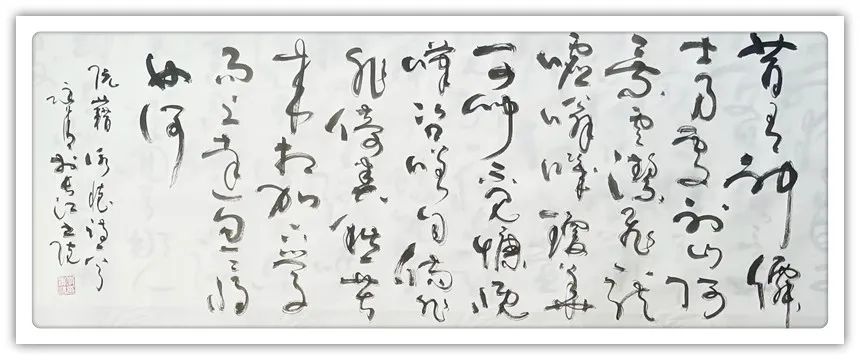 昔有神僊
士乃處射山阿
乘雲御飛龍
噓噏嘰瓊華
可聞不可見慷慨
嘆咨嗟自傷
非儔類愁苦
來相加下學
而上達忽忽將
如何
阮籍詠懷詩一首
於長江書院